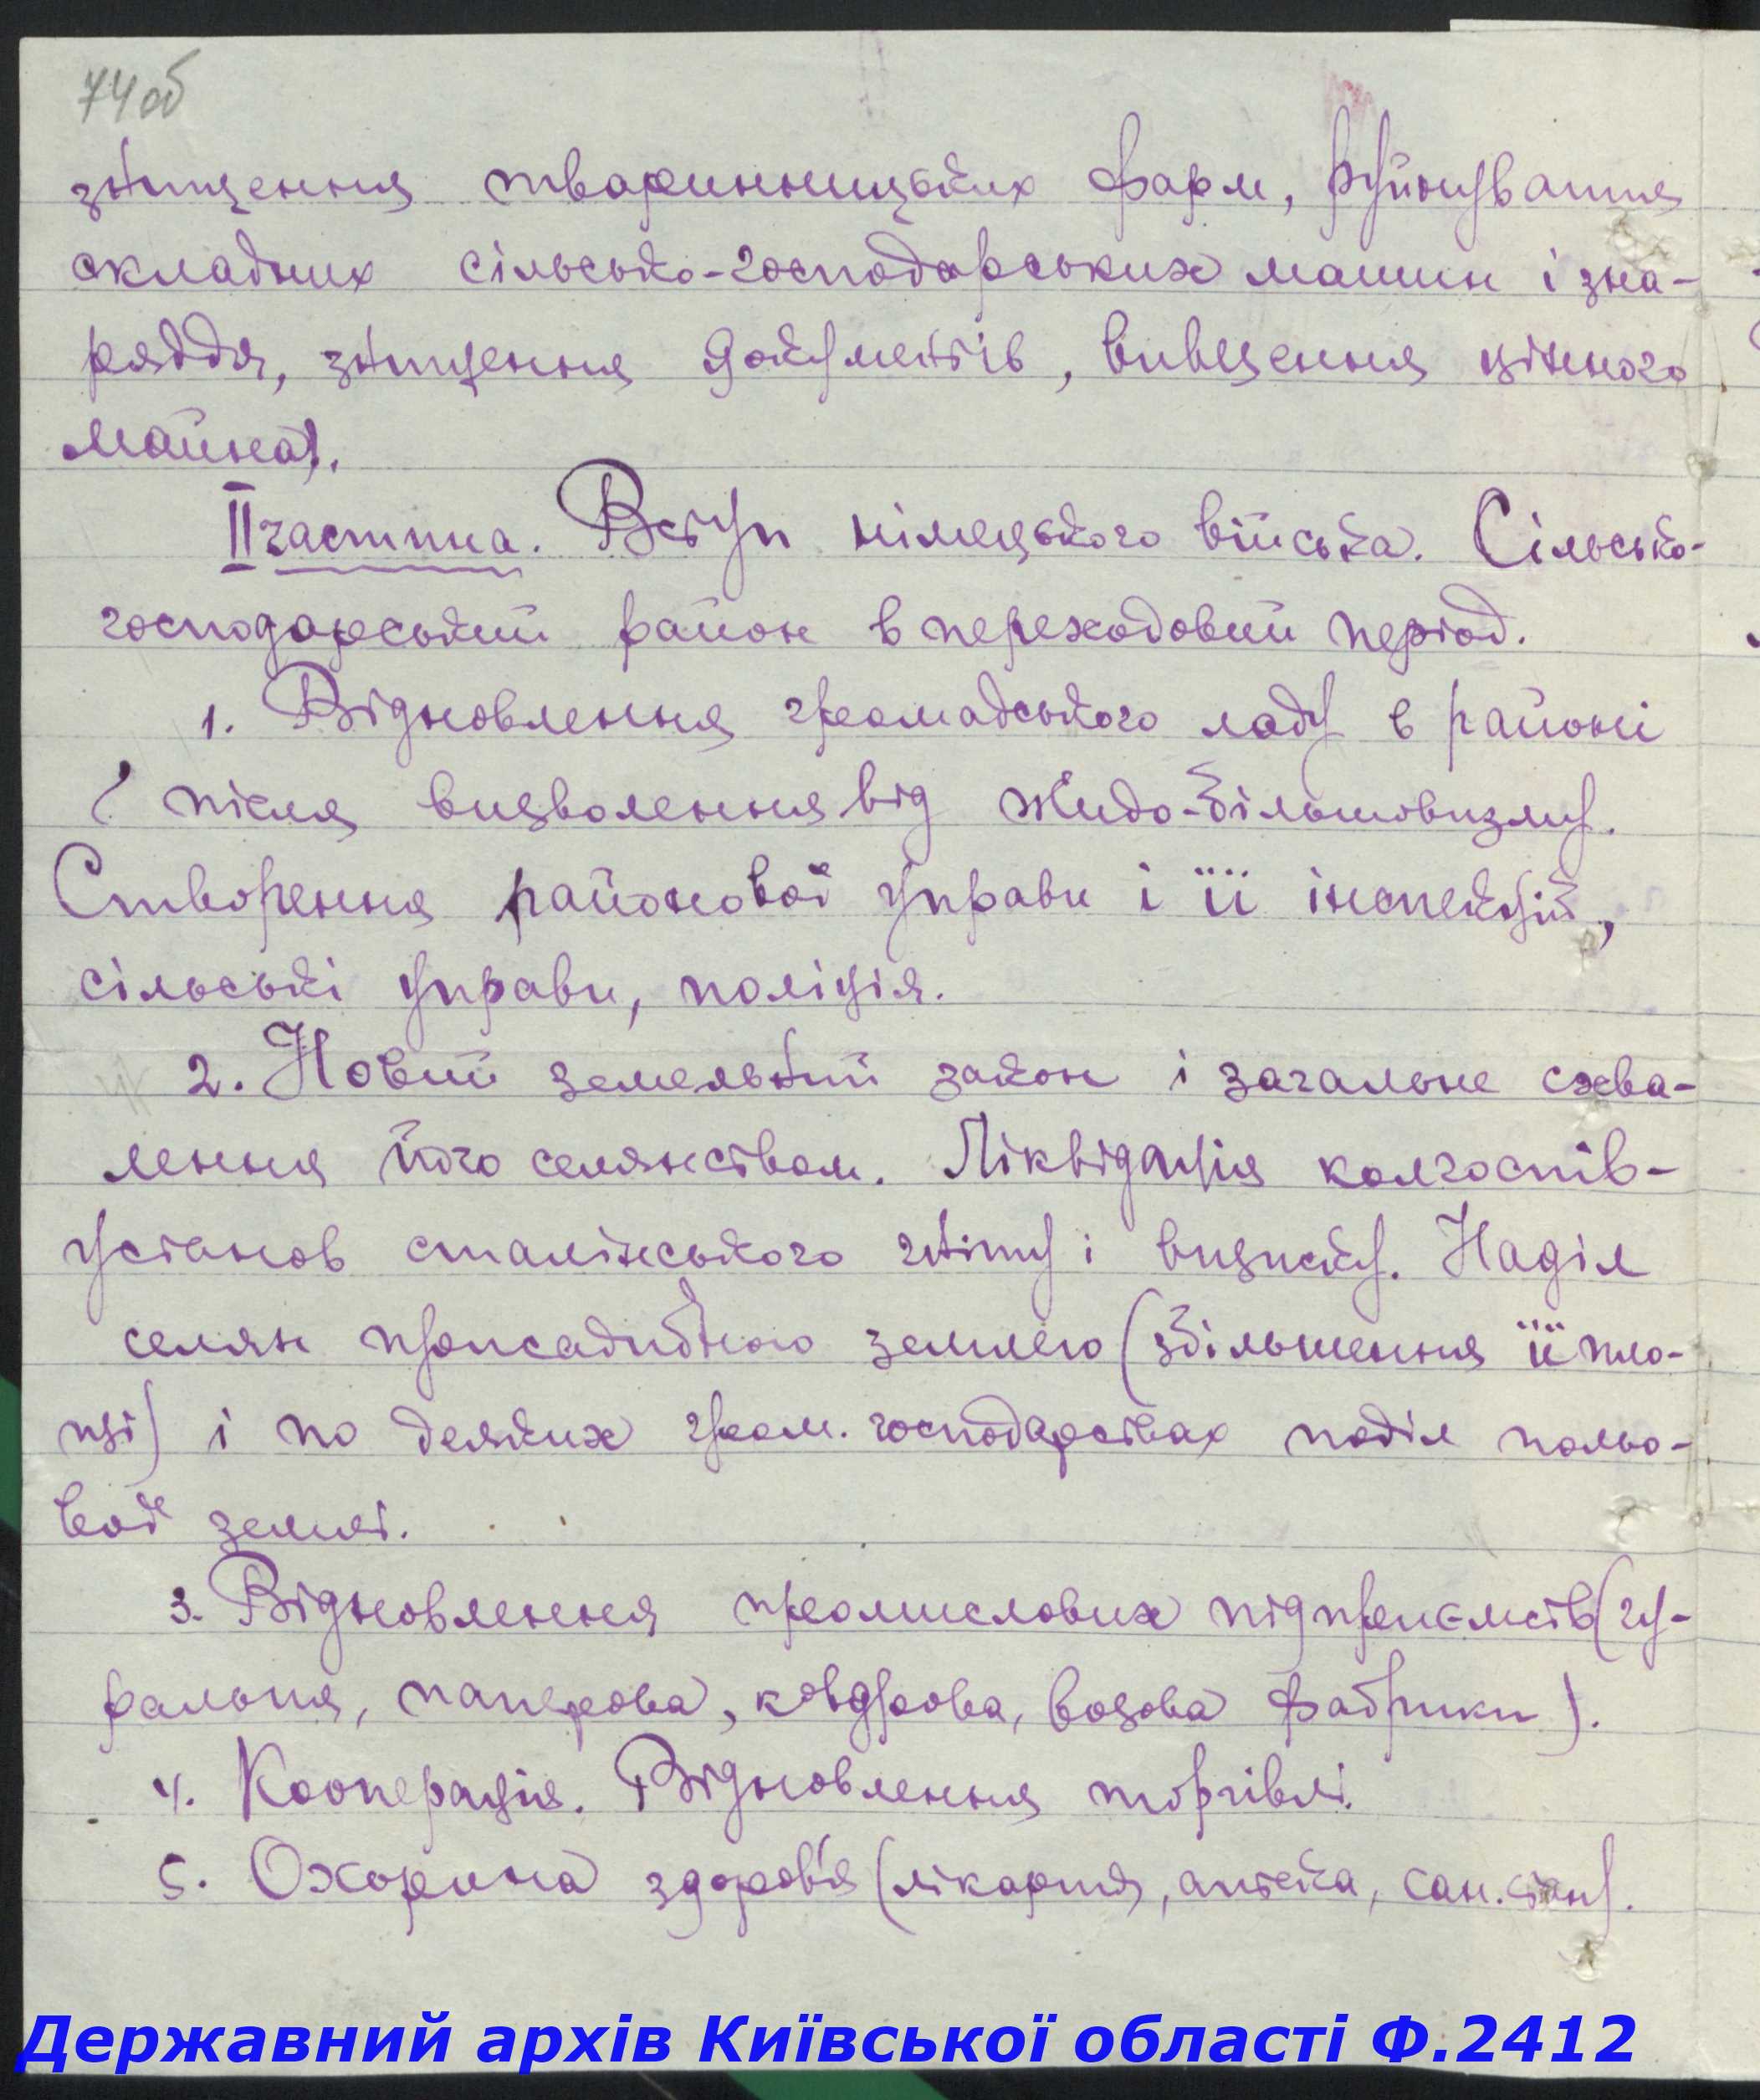 74об
знищення тваринницьких фарм, руйнування
складних сільсько-господарських машин і зна-
ряддя, знищення документів, вивезення цінного
майна).
II частина. Вступ німецького війська. Сільсько-
господарський район в переходовий період.
1. Відновлення громадського ладу в районі
після визволення від жидо-більшовизму.
Створення районової управи і її інспекцій,
сільські управи, поліція.
2. Новий земельний закон і загальне схва-
лення його селянством. Ліквідація колгоспів-
установ сталінського гніту і визиску. Наділ
селян присадибною землею (збільшення її пло-
щі) і по деяких гром. господарствах поділ польо-
вої землі.
3. Відновлення промислових підприємств (гу-
ральня, паперова, ковдрова, возова фабрики).
4. Кооперація. Відновлення торгівлі.
5. Охорона здоров'я (лікарня, аптека, сан. стан).
Державний архів Київської області Ф.2412